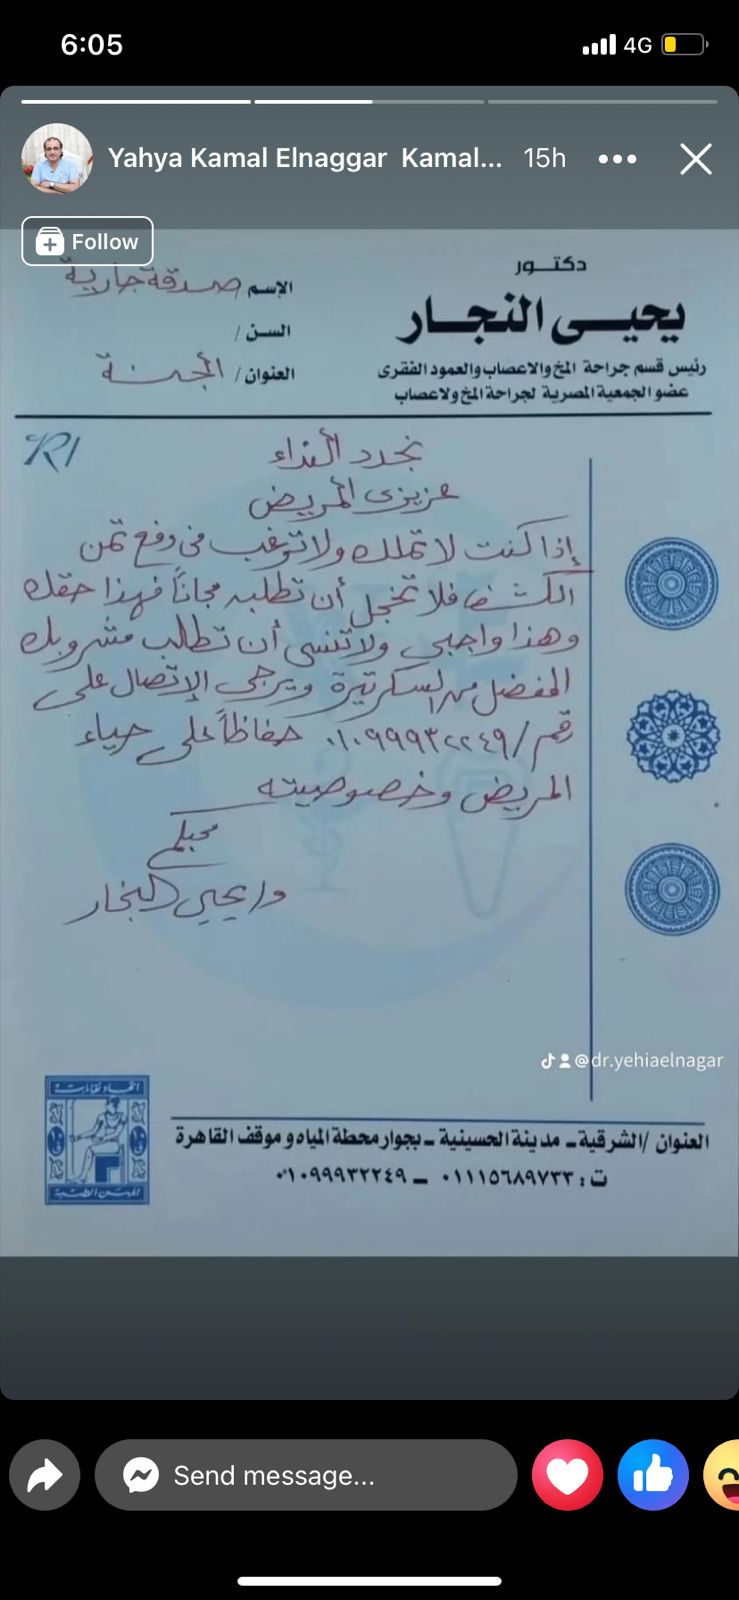 6:05
4G
Yahya Kamal Elnaggar Kamal... 15h
Follow
دكتـور
يحيـى النجـار
رئيس قسم جراحة المخ والاعصاب والعمود الفقرى
عضو الجمعية المصرية لجراحة المخ ولاعصاب
الإسم صدقة جارية
السن /
العنوان / الجنة
R/
نجدد النداء
عزيزى المريض
إذا كنت لا تملك ولا ترغب فى دفع ثمن
الكشف فلا تخجل أن تطلبه مجاناً فهذا حقك
وهذا واجبى ولا تنسى أن تطلب مشروبك
المفضل من السكرتيرة ويرجى الإتصال على
رقم / ٠١٠٩٩٩٣٢٢٤٩ حفاظاً على حياء
المريض وخصوصيته
محبكم
د/ يحيى النجار
@dr.yehiaelnagar
اتحاد نقابات
المهن الطبية
العنوان / الشرقية ـ مدينة الحسينية ـ بجوار محطة المياه و موقف القاهرة
ت : ٠١١١٥٦٨٩٧٣٣ ـ ٠١٠٩٩٩٣٢٢٤٩
Send message...